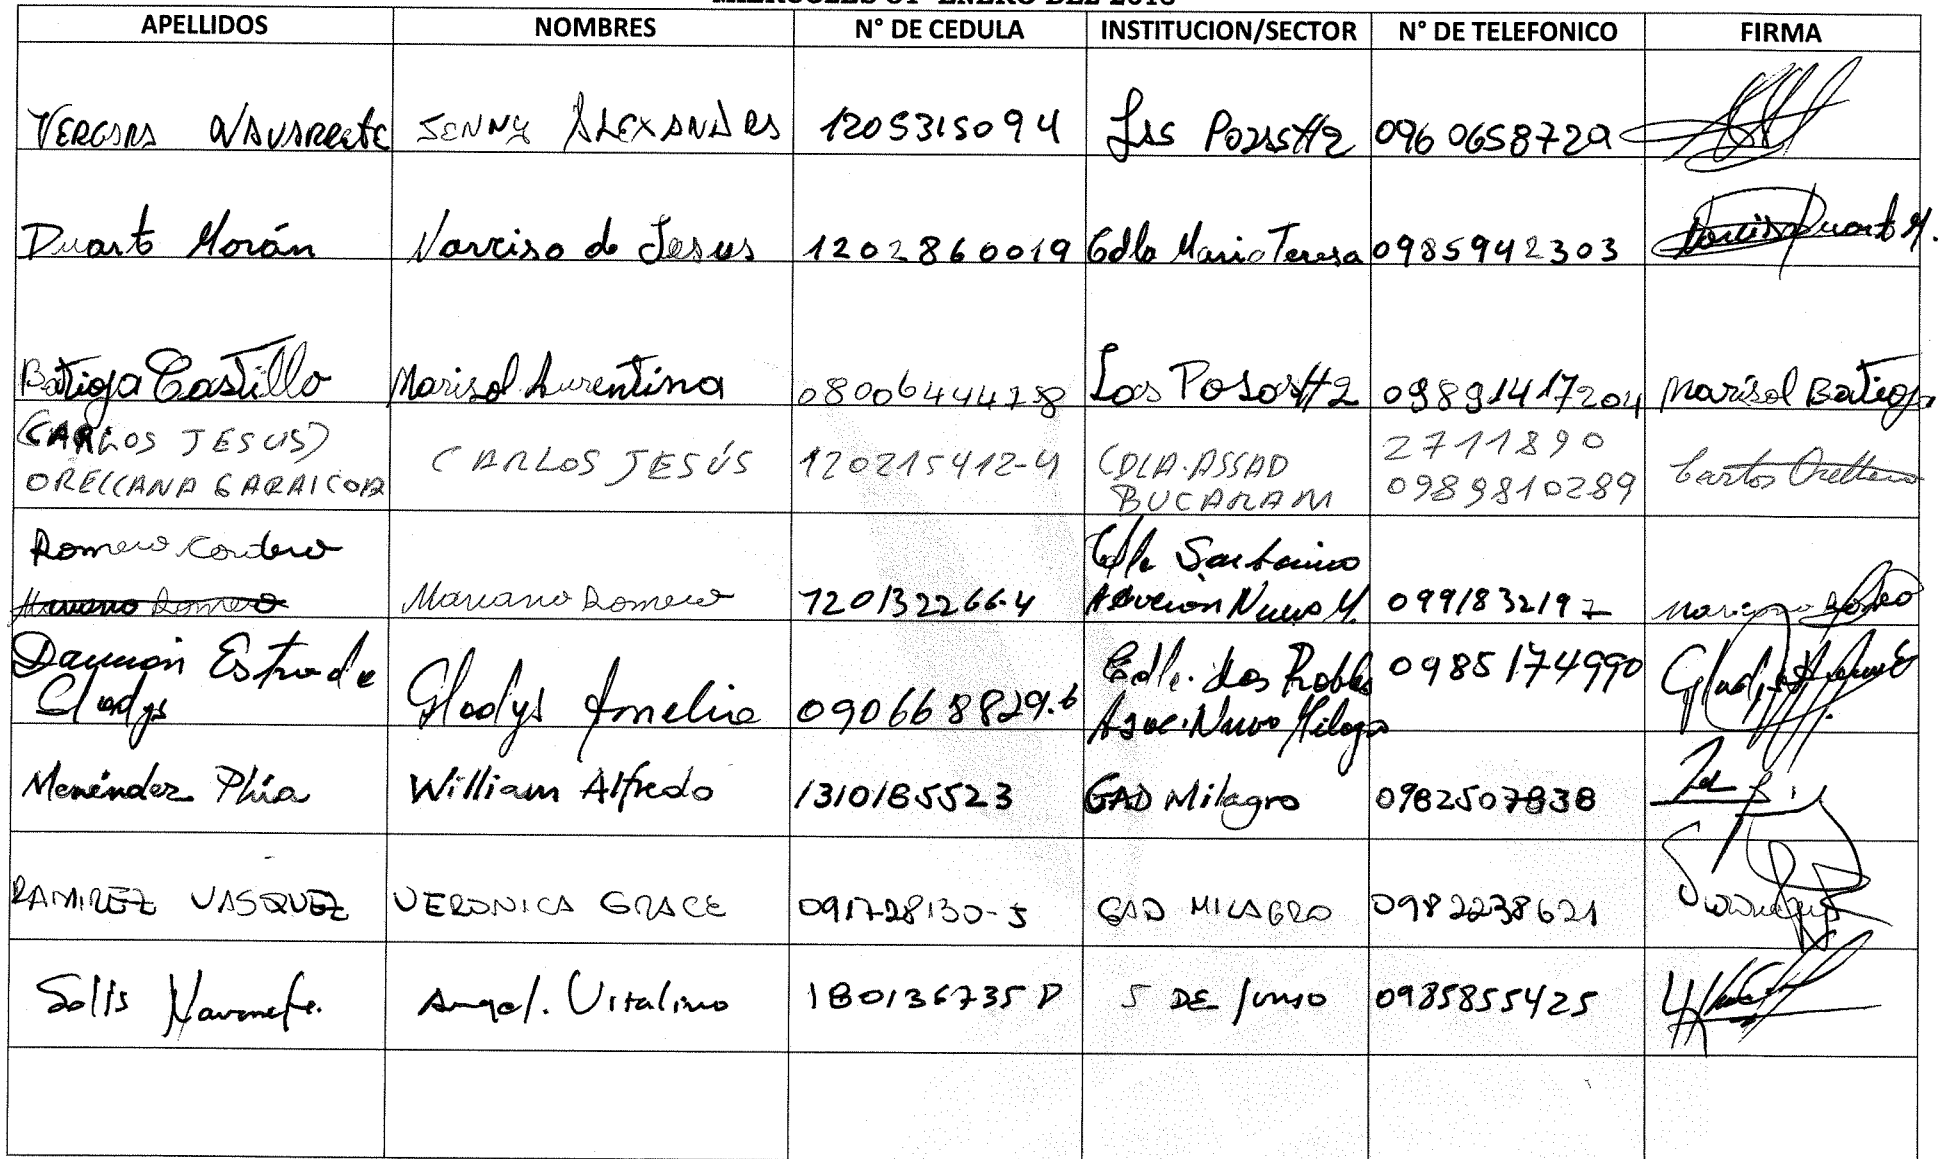 APELLIDOS NOMBRES N° DE CEDULA INSTITUCION/SECTOR N° DE TELEFONICO FIRMA
VERGARA NAVARRETE JENNY ALEXANDRA 1205315094 Las Pozas #2 0960658729
Duarte Morán Narciso de Jesus 1202860019 Cdla Maria Teresa 0985942303 Narciso Duarte M.
Batioja Castillo Marisol Aurentina Las Posas #2 09891417204 Marisol Batioja
(CARLOS JESUS)
ORELLANA GARAICOA CARLOS JESÚS 120215412-4 CDLA. ASSAD
BUCARAM 2711890
0989810289 Carlos Orellana
Romero Cordero
Mariano Romero Mariano Romero 120132266-4 Cdla
Nuevo M. 0991832197 Mariano Romero
Estrada
Gladys Gladys Amelia 090668829.6 Cdla. Los Robles
Asoc. Nuevo Milagro 0985174990
Menéndez Phía William Alfredo 1310185523 GAD Milagro 0982507838
RAMIREZ VASQUEZ VERONICA GRACE 091728130-5 GAD MILAGRO 0982238621
Solis Navarrete. Angel. Vitalino 5 DE Junio 0985855425